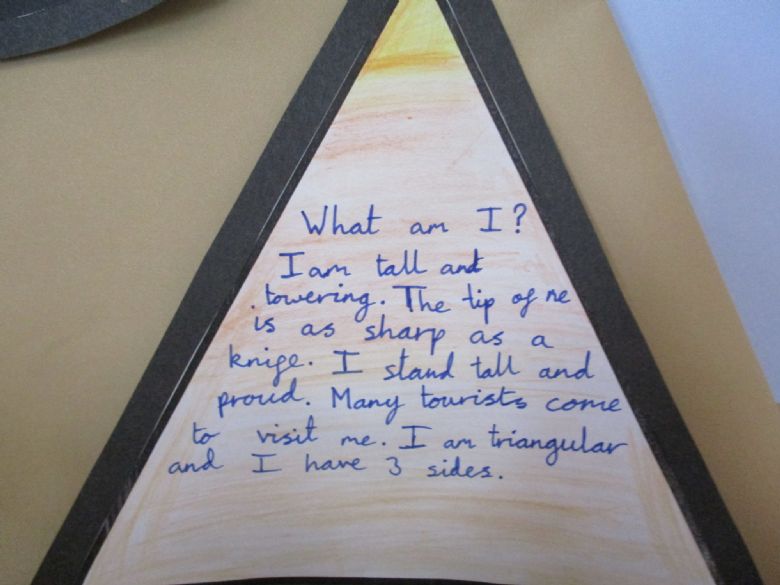 What am I?
I am tall and
towering. The tip of me
is as sharp as a
knife. I stand tall and
proud. Many tourists come
to visit me. I am triangular
and I have 3 sides.